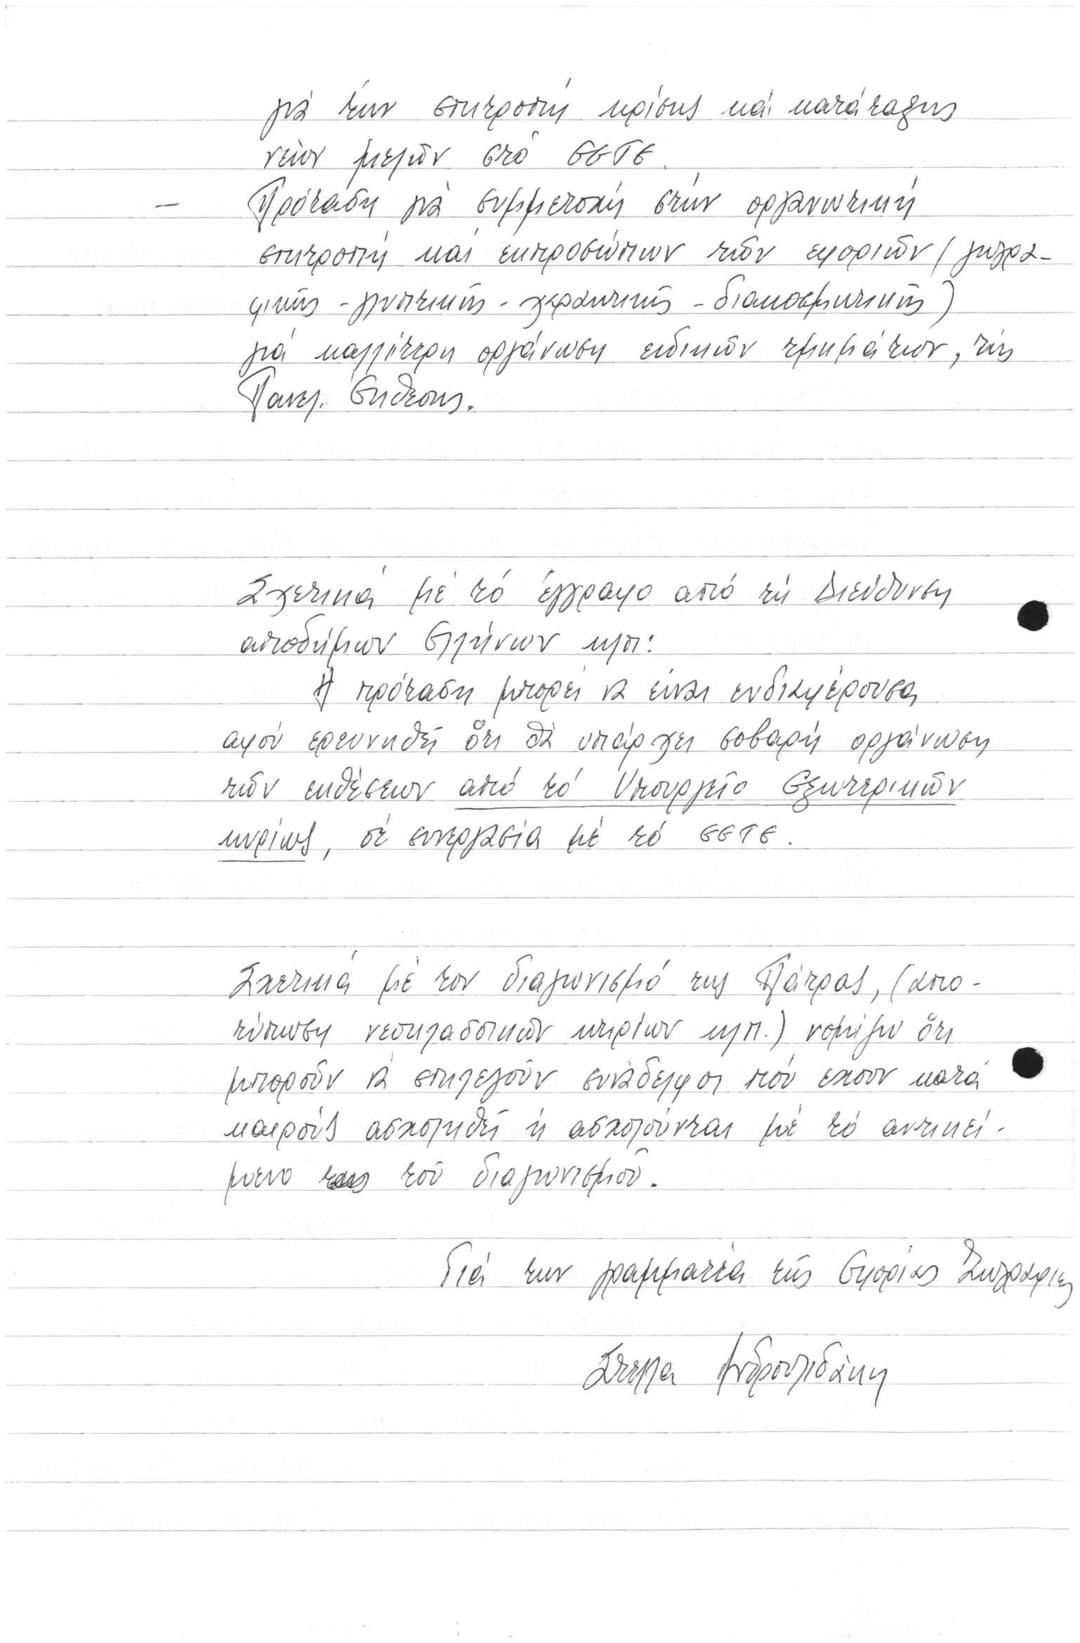 γιά τήν επιτροπή κρίσης καί κατάταξης
νέων μελών στό ΕΕΤΕ.
— Πρόταση γιά συμμετοχή στήν οργανωτική
επιτροπή καί εκπροσώπων τών εφοριών (ζωγρα-
φικής - γλυπτικής - χαρακτικής - διακοσμητικής)
γιά καλλίτερη οργάνωση ειδικών τμημάτων, τής
Πανελ. Έκθεσης.
Σχετικά μέ τό έγγραφο από τή Διεύθυνση
αποδήμων Ελλήνων κλπ:
Η πρόταση μπορεί νά είναι ενδιαφέρουσα
αφού ερευνηθεί ότι θά υπάρχει σοβαρή οργάνωση
τών εκθέσεων από τό Υπουργείο Εξωτερικών
κυρίως, σέ συνεργασία μέ τό ΕΕΤΕ.
Σχετικά μέ τον διαγωνισμό της Πάτρας, (απο-
τύπωση νεοκλασσικών κτιρίων κλπ.) νομίζω ότι
μπορούν νά επιλεγούν συνάδελφοι πού έχουν κατά
καιρούς ασχοληθεί ή ασχολούνται μέ τό αντικεί-
μενο τού διαγωνισμού.
Γιά την γραμματέα τής Εφορίας Ζωγραφικής
Στέλλα Ανδρουλιδάκη